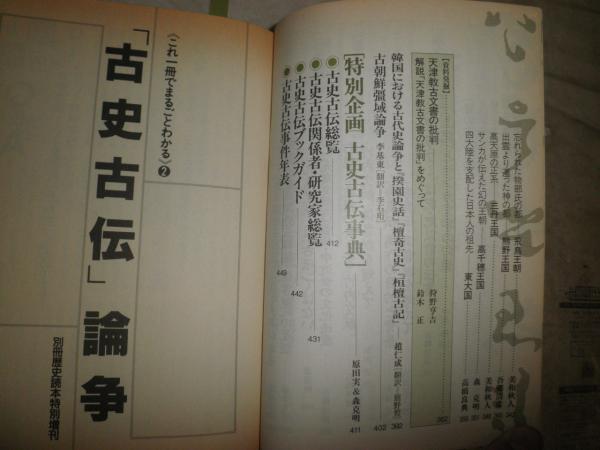 忘れられた物部氏の都 飛鳥王朝 美和秋人
出雲より遷った神の都 熊野王国
高天原の正系 三丹王国 美和秋人
サンカが伝えた幻の王朝 高千穂王国 森 克明
四大陸を支配した日本人の祖先 東大国 高橋良典
【資料発掘】
天津教古文書の批判 狩野亨吉 362
解説『天津教古文書の批判』をめぐって 鈴木 正
韓国における古代史論争と『揆園史話』『檀奇古史』『桓檀古記』 趙仁成 392
古朝鮮彊域論争 李基東〔翻訳―李石用〕 402
[特別企画 古史古伝事典] 原田実&森克明 411
●古史古伝総覧 412
●古史古伝関係者・研究家総覧 431
●古史古伝ブックガイド 442
●古史古伝事件年表 449
《これ一冊でまるごとわかる》❷
「古史古伝」論争
別冊歴史読本特別増刊